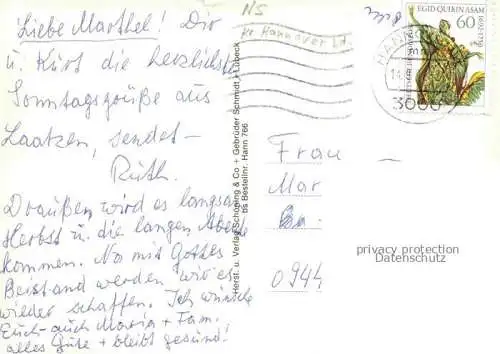 Liebe Marthel! Dir
u. Kurt die herzlichsten
Sonntagsgrüße aus
Laatzen, sendet-
Ruth.
Draußen wird es langsam
Herbst u. die langen Abende
kommen. No mit Gottes
Beistand werden wir es
wieder schaffen. Ich wünsche
Euch auch Maria + Fam.
alles Gute + bleibt gesund!
NS
Kr Hannover Ld.
Herst. u. Verlag Schöning & Co + Gebrüder Schmidt · Lübeck
Bestellnr. Hann 766
EGID QUIRIN ASAM
1692-1750
60
HANN
3000
Frau
Mar
0944
privacy protection
Datenschutz